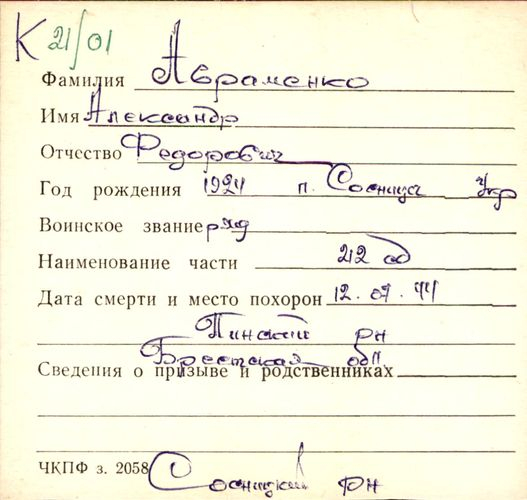 К 21/01
Фамилия Авраменко
Имя Александр
Отчество Федорович
Год рождения 1924 п. Сосница Укр
Воинское звание ряд
Наименование части 212 сд
Дата смерти и место похорон 12.07.44
Пинский рн
Брестская обл
Сведения о призыве и родственниках
ЧКПФ з. 2058
Сосницкий рн